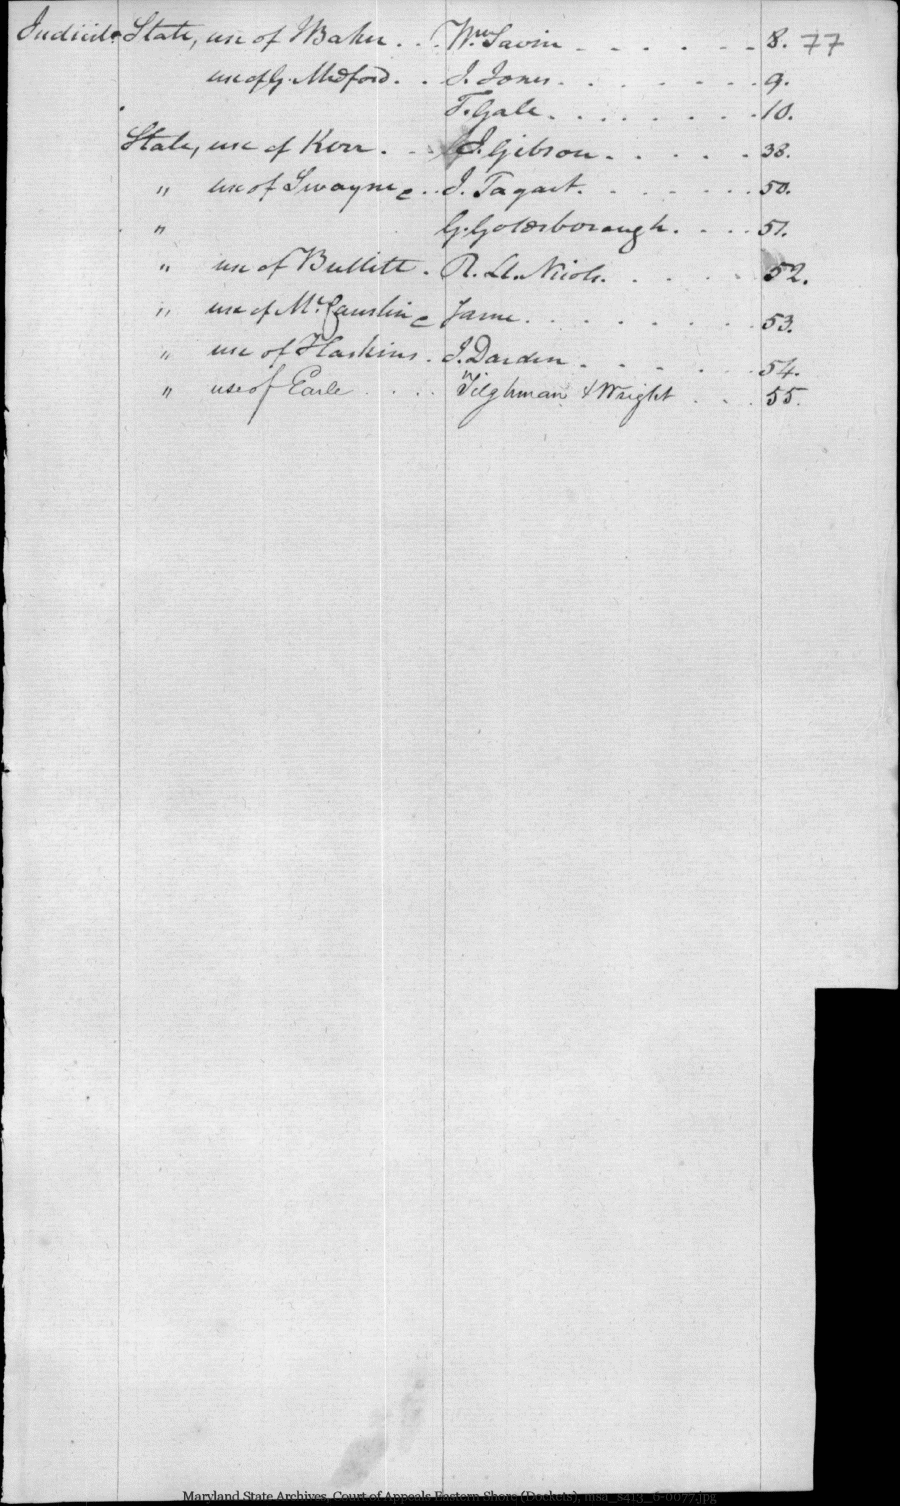 Judicil. State, use of J Baker . . . Wm. Savin . . . . . . 8. 77
use of G. Medford . . . J. Jones . . . . . . . 9.
T. Gale . . . . . . . . 10.
State, use of Kerr . . . J. Gibson . . . . . 38.
" use of Swayne . . . J. Tagart . . . . . . 50.
" G. Goldsborough . . . . 51.
" use of Bullitt . R. Ll. Nicols . . . . . . 52.
" use of McCauslin Same . . . . . . . 53.
" use of Haskins . J. Darden . . . . . . 54.
" use of Earle . . . . Tilghman & Wright . . . 55.
Maryland State Archives, Court of Appeals Eastern Shore (Dockets), msa_s413_6-0077.jpg